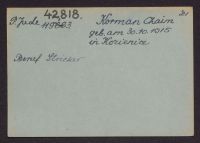 P. Jude 42818.
Korman Chaim
geb. am 30.10.1915
in Kozienice
Beruf Stricker